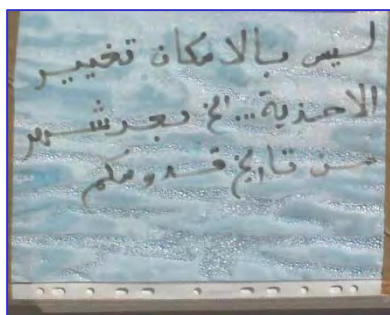 ليس بالامكان تغيير
الاحذية...الخ بعد شهر
من تاريخ قدومكم